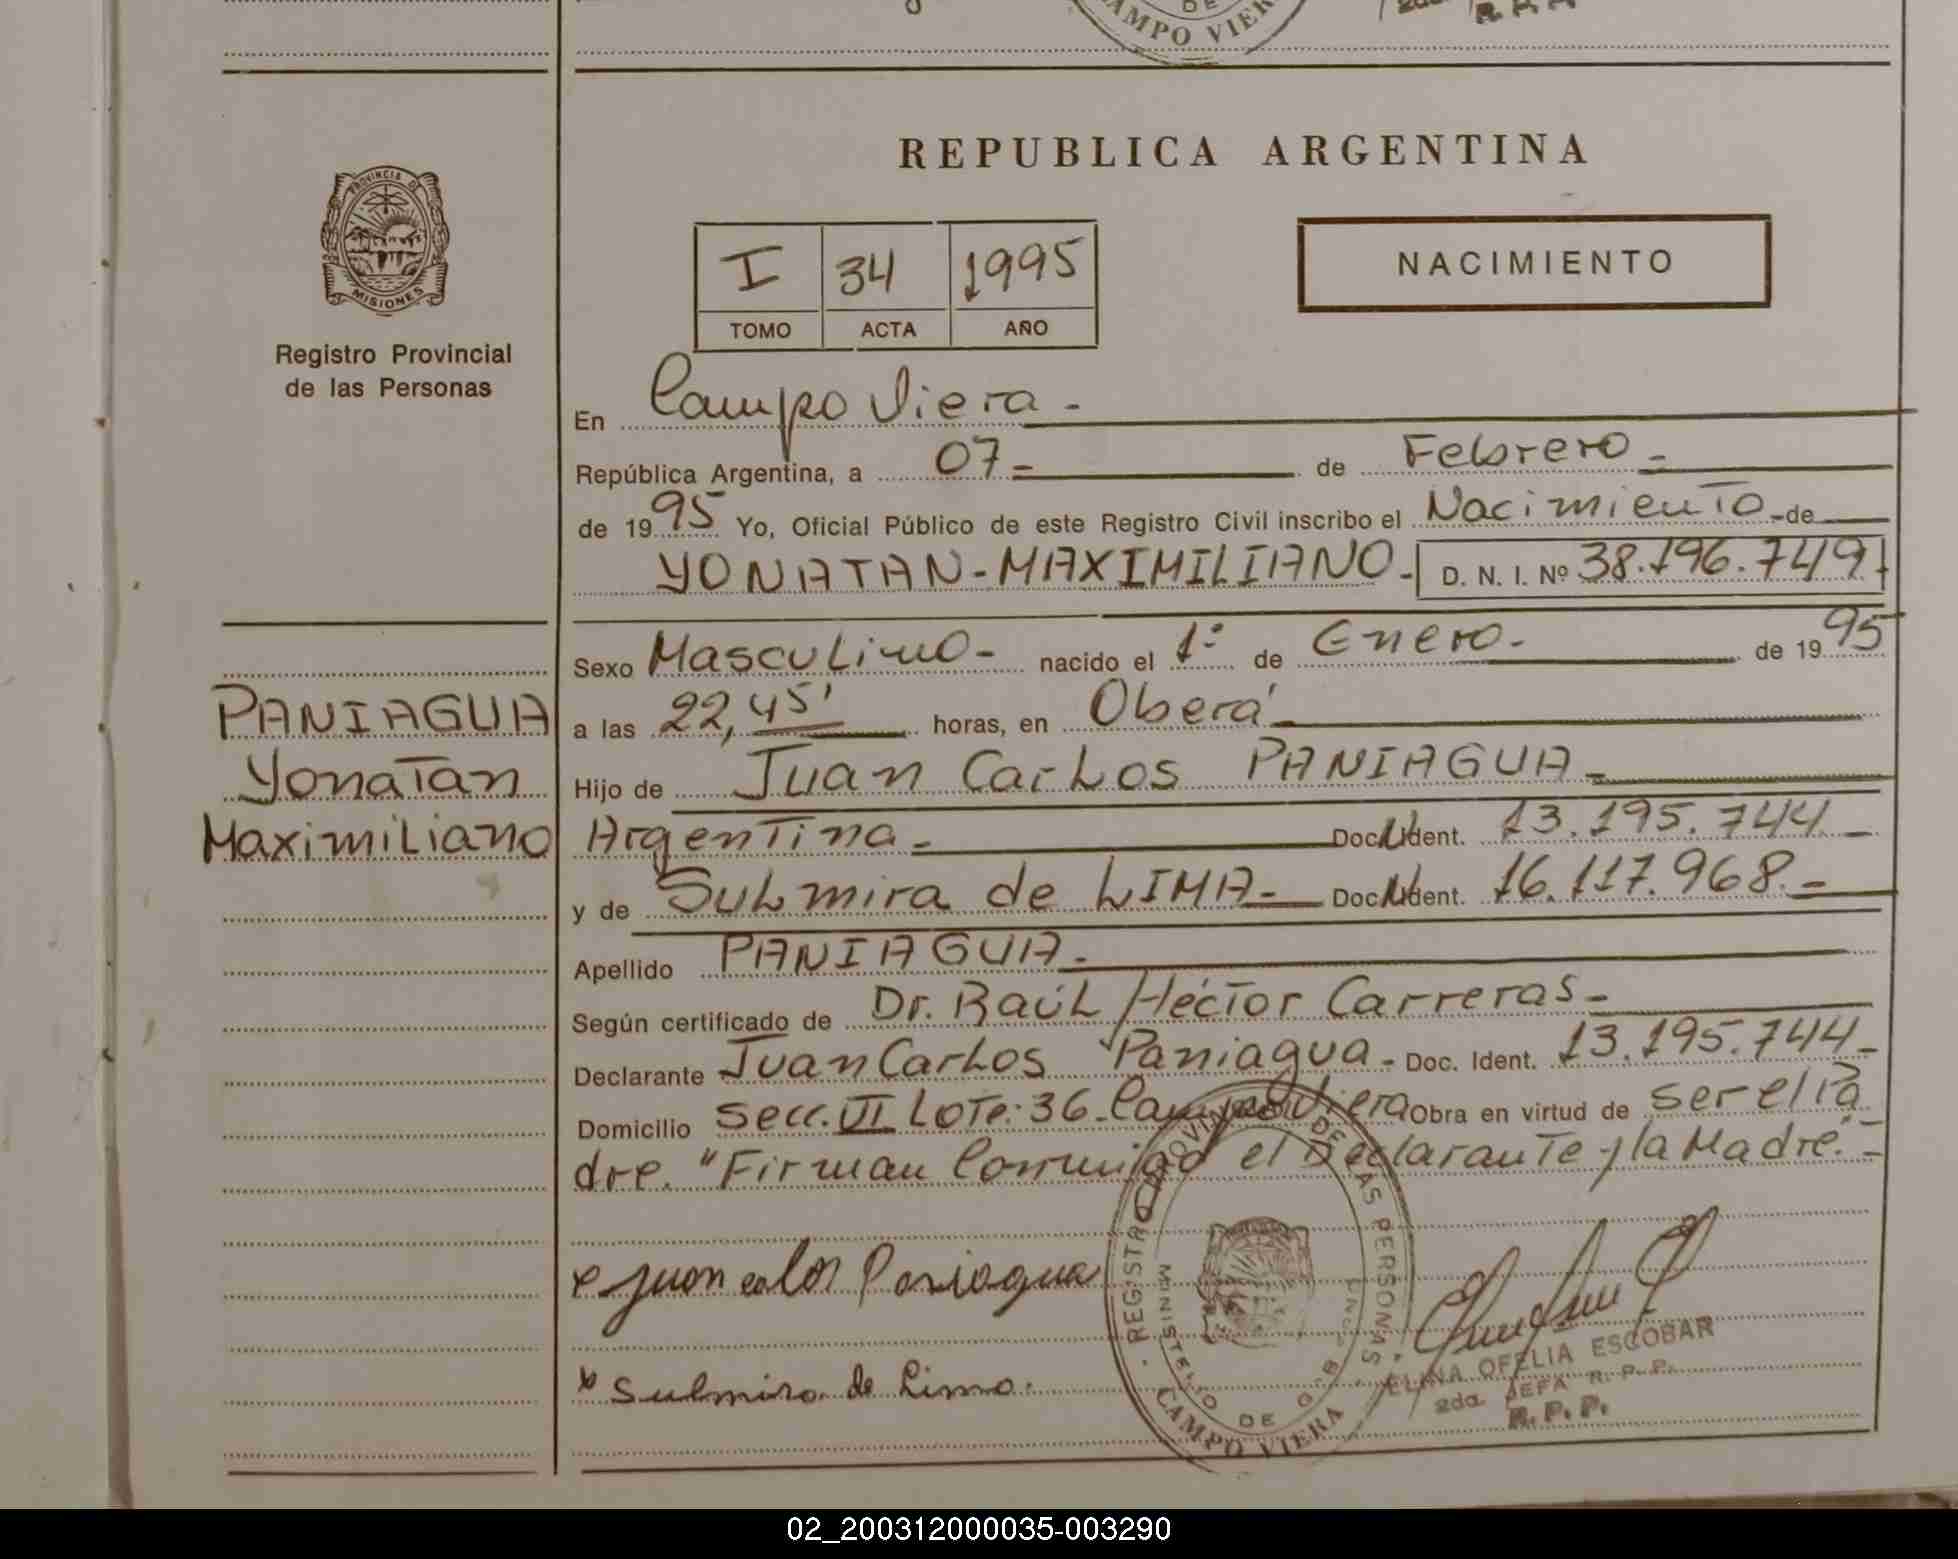 DE
CAMPO VIERA
R. P. P.
PROVINCIA DE
MISIONES
Registro Provincial
de las Personas
REPUBLICA ARGENTINA
I 34 1995
TOMO ACTA AÑO
NACIMIENTO
En Campo Viera-
República Argentina, a 07- de Febrero-
de 1995 Yo, Oficial Público de este Registro Civil inscribo el Nacimiento-de
YONATAN-MAXIMILIANO- D. N. I. Nº 38.196.749
Sexo Masculino- nacido el 1º de Enero- de 1995
PANIAGUA
Yonatan
Maximiliano
a las 22,45' horas, en Oberá-
Hijo de Juan Carlos PANIAGUA-
Argentina- Doc. Ident. 13.195.744-
y de Sulmira de LIMA- Doc. Ident. 16.117.968.-
Apellido PANIAGUA-
Según certificado de Dr. Raúl Héctor Carreras-
Declarante Juan Carlos Paniagua- Doc. Ident. 13.195.744-
Domicilio Secc. VI Lote: 36-Campo Viera Obra en virtud de ser el Pa
dre. "Firman Conmigo el Declarante y la Madre."-
x Juan calos Paniagua
x Sulmira de Lima.
REGISTRO PROVINCIAL DE LAS PERSONAS
MINISTERIO DE GOB.
CAMPO VIERA
ELINA OFELIA ESCOBAR
2da JEFA R. P. P.
R. P. P.
02_200312000035-003290